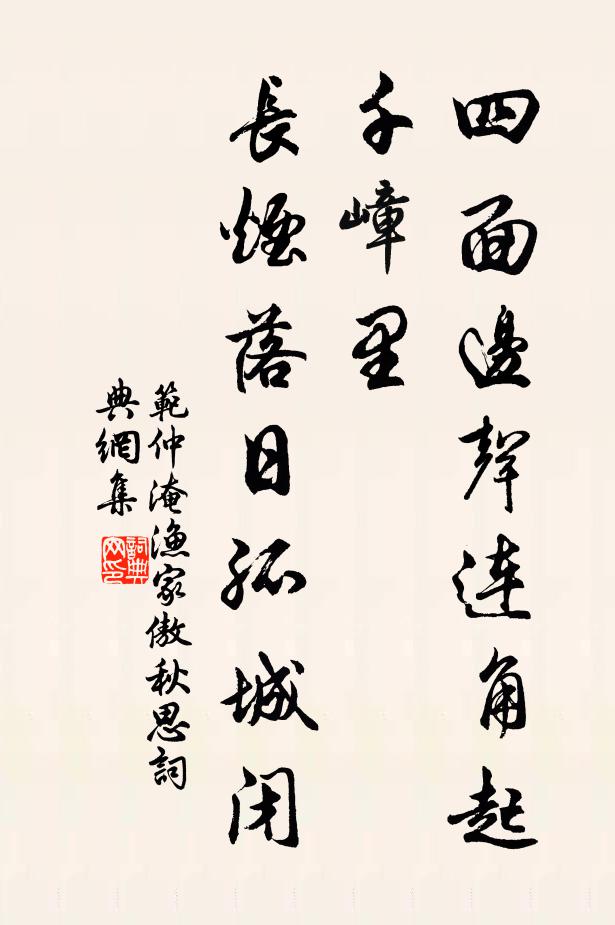 四面邊聲連角起
千嶂里
長煙落日孤城闭
範仲淹漁家傲秋思詞
典網集
詞典
网印